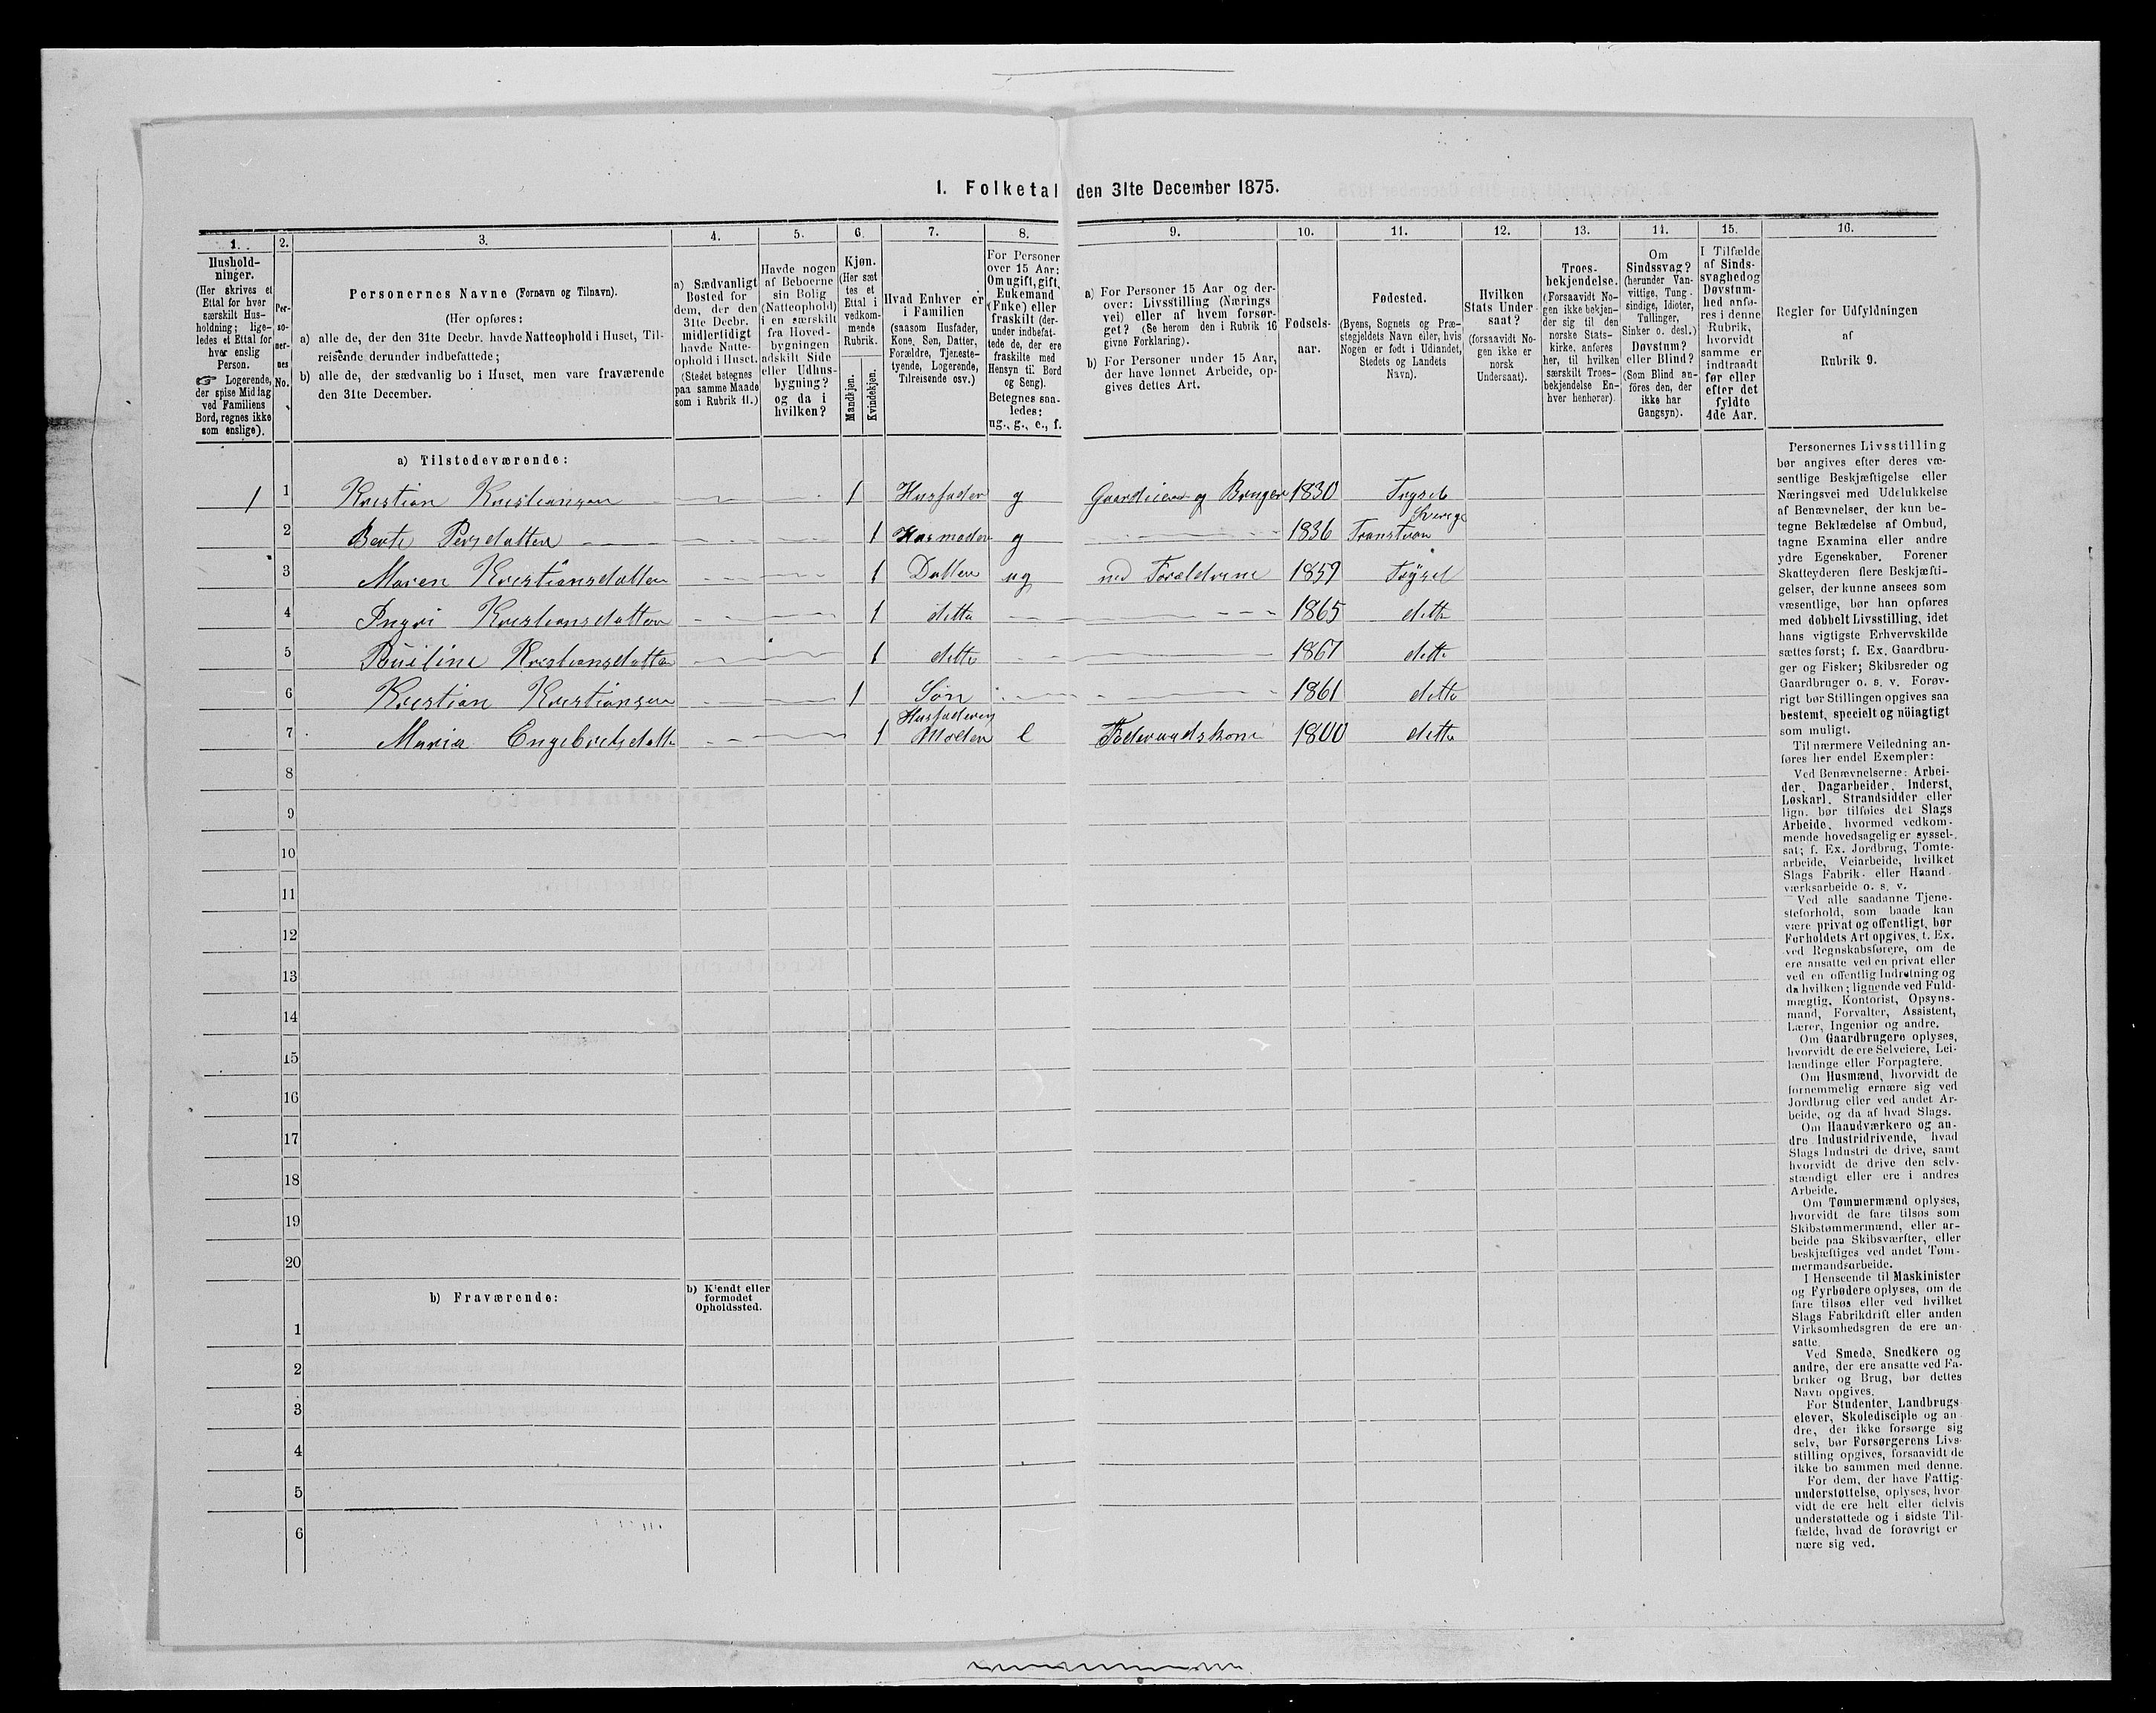 1. Folketal den 31te December 1875.
1. 2. 3. 4. 5. 6. 7. 8. 9. 10. 11. 12. 13. 14. 15. 16.
Hushold-
ninger.
(Her skrives et
Ettal for hver
særskilt Hus-
holdning; lige-
ledes et Ettal for
hver enslig
Person.
☞ Logerende,
der spise Middag
ved Familiens
Bord, regnes ikke
som enslige).
Per-
so-
ner-
nes
No.
Personernes Navne (Fornavn og Tilnavn).
(Her opføres:
a) alle de, der den 31te Decbr. havde Natteophold i Huset, Til-
reisende derunder indbefattede;
b) alle de, der sædvanlig bo i Huset, men vare fraværende
den 31te December.
a) Sædvanligt
Bosted for
dem, der den
31te Decbr.
midlertidigt
havde Natte-
ophold i Huset.
(Stedet betegnes
paa samme Maade
som i Rubrik 11.)
Havde nogen
af Beboerne
sin Bolig
(Natteophold)
i en særskilt
fra Hoved-
bygningen
adskilt Side
eller Udhus-
bygning?
og da i
hvilken?
Kjøn.
(Her sæt
tes et
Ettal i
vedkom-
mende
Rubrik.
Mandkjøn.
Kvindekjøn.
Hvad Enhver er
i Familien
(saasom Husfader,
Kone, Søn, Datter,
Forældre, Tjeneste-
tyende, Logerende,
Tilreisende osv.)
For Personer
over 15 Aar:
Om ugift, gift,
Enkemand
(Enke) eller
fraskilt (der-
under indbefat-
tede de, der ere
fraskilte med
Hensyn til Bord
og Seng).
Betegnes saa-
ledes:
ug., g., e., f.
a) For Personer 15 Aar og der-
over: Livsstilling (Nærings
vei) eller af hvem forsør-
get? (Se herom den i Rubrik 16
givne Forklaring).
b) For Personer under 15 Aar,
der have lønnet Arbeide, op-
gives dettes Art.
Fødsels-
aar.
Fødested.
(Byens, Sognets og Præ-
stegjeldets Navn eller, hvis
Nogen er født i Udlandet,
Stedets og Landets
Navn).
Hvilken
Stats Under
saat?
(forsaavidt No-
gen ikke er
norsk
Undersaat).
Troes-
bekjendelse.
(Forsaavidt No-
gen ikke bekjen-
der sig til den
norske Stats-
kirke, anføres
her, til hvilken
særskilt Troes-
bekjendelse En-
hver henhører).
Om
Sindssvag?
(herunder Van-
vittige, Tung-
sindige, Idioter,
Tullinger,
Sinker o. desl.)
Døvstum?
eller Blind?
(Som Blind an-
føres den, der
ikke har
Gangsyn).
I Tilfælde
af Sinds-
svaghed og
Døvstum-
hed anfø-
res i denne
Rubrik,
hvorvidt
samme er
indtraadt
før eller
efter det
fyldte
4de Aar.
Regler for Udfyldningen
af
Rubrik 9.
a) Tilstedeværende:
1 1 Kristian Kristiansen 1 Husfader g Gaardeier og Bruger 1830 Trysil
2 Berte Persdatter 1 Husmoder g 1836 Transtran Sverige
3 Maren Kristiansdatter 1 Datter ug ved Forældrene 1859 Trysil
4 Ingri Kristiansdatter 1 detto 1865 detto
5 Pauline Kristiansdatter 1 detto 1867 detto
6 Kristian Kristiansen 1 Søn 1861 detto
7 Maria Engebretsdatt 1 Husfaderens Moder e Føderaadskone 1800 detto
8
9
10
11
12
13
14
15
16
17
18
19
20
b) Fraværende:
b) Kjendt eller
formodet
Opholdssted.
1
2
3
4
5
6
Personernes Livsstilling
bør angives efter deres væ-
sentlige Beskjæftigelse eller
Næringsvei med Udelukkelse
af Benævnelser, der kun be-
tegne Beklædelse af Ombud,
tagne Examina eller andre
ydre Egenskaber. Forener
Skatteyderen flere Beskjæfti-
gelser, der kunne ansees som
væsentlige, bør han opføres
med dobbelt Livsstilling, idet
hans vigtigste Erhvervskilde
sættes først; f. Ex. Gaardbru-
ger og Fisker; Skibsreder og
Gaardbruger o. s. v. Forøv-
rigt bør Stillingen opgives saa
bestemt, specielt og nöiagtigt
som muligt.
Til nærmere Veiledning an-
føres her endel Exempler:
Ved Benævnelserne: Arbei-
der, Dagarbeider, Inderst,
Løskarl, Strandsidder eller
lign. bør tilføies det Slags
Arbeide, hvormed vedkom-
mende hovedsagelig er syssel-
sat; f. Ex. Jordbrug, Tomte-
arbeide, Veiarbeide, hvilket
Slags Fabrik- eller Haand-
værksarbeide o. s. v.
Ved alle saadanne Tjene-
steforhold, som baade kan
være privat og offentligt, bør
Forholdets Art opgives, t. Ex.
ved Regnskabsførere, om de
ere ansatte ved en privat eller
ved en offentlig Indretning og
da hvilken; lignende ved Fuld-
mægtig, Kontorist, Opsyns-
mand, Forvalter, Assistent,
Lærer, Ingeniør og andre.
Om Gaardbrugere oplyses,
hvorvidt de ere Selveiere, Lei-
lændinge eller Forpagtere.
Om Husmænd, hvorvidt de
fornemmelig ernære sig ved
Jordbrug eller ved andet Ar-
beide, og da af hvad Slags.
Om Haandværkere og an-
dre Industridrivende, hvad
Slags Industri de drive, samt
hvorvidt de drive den selv-
stændigt eller ere i andres
Arbeide.
Om Tømmermænd oplyses,
hvorvidt de fare tilsøs som
Skibstømmermænd, eller ar-
beide paa Skibsværfter, eller
beskjæftiges ved andet Tøm-
mermandsarbeide.
I Henseende til Maskinister
og Fyrbødere oplyses, om de
fare tilsøs eller ved hvilket
Slags Fabrikdrift eller anden
Virksomhedsgren de ere an-
satte.
Ved Smede, Snedkere og
andre, der ere ansatte ved Fa-
briker og Brug, bør dettes
Navn opgives.
For Studenter, Landbrugs-
elever, Skoledisciple og an-
dre, der ikke forsørge sig
selv, bør Forsørgerens Livs-
stilling opgives, forsaavidt de
ikke bo sammen med denne.
For dem, der have Fattig-
understøttelse, oplyses, hvor-
vidt de ere helt eller delvis
understøttede og i sidste Til-
fælde, hvad de forøvrigt er
nære sig ved.